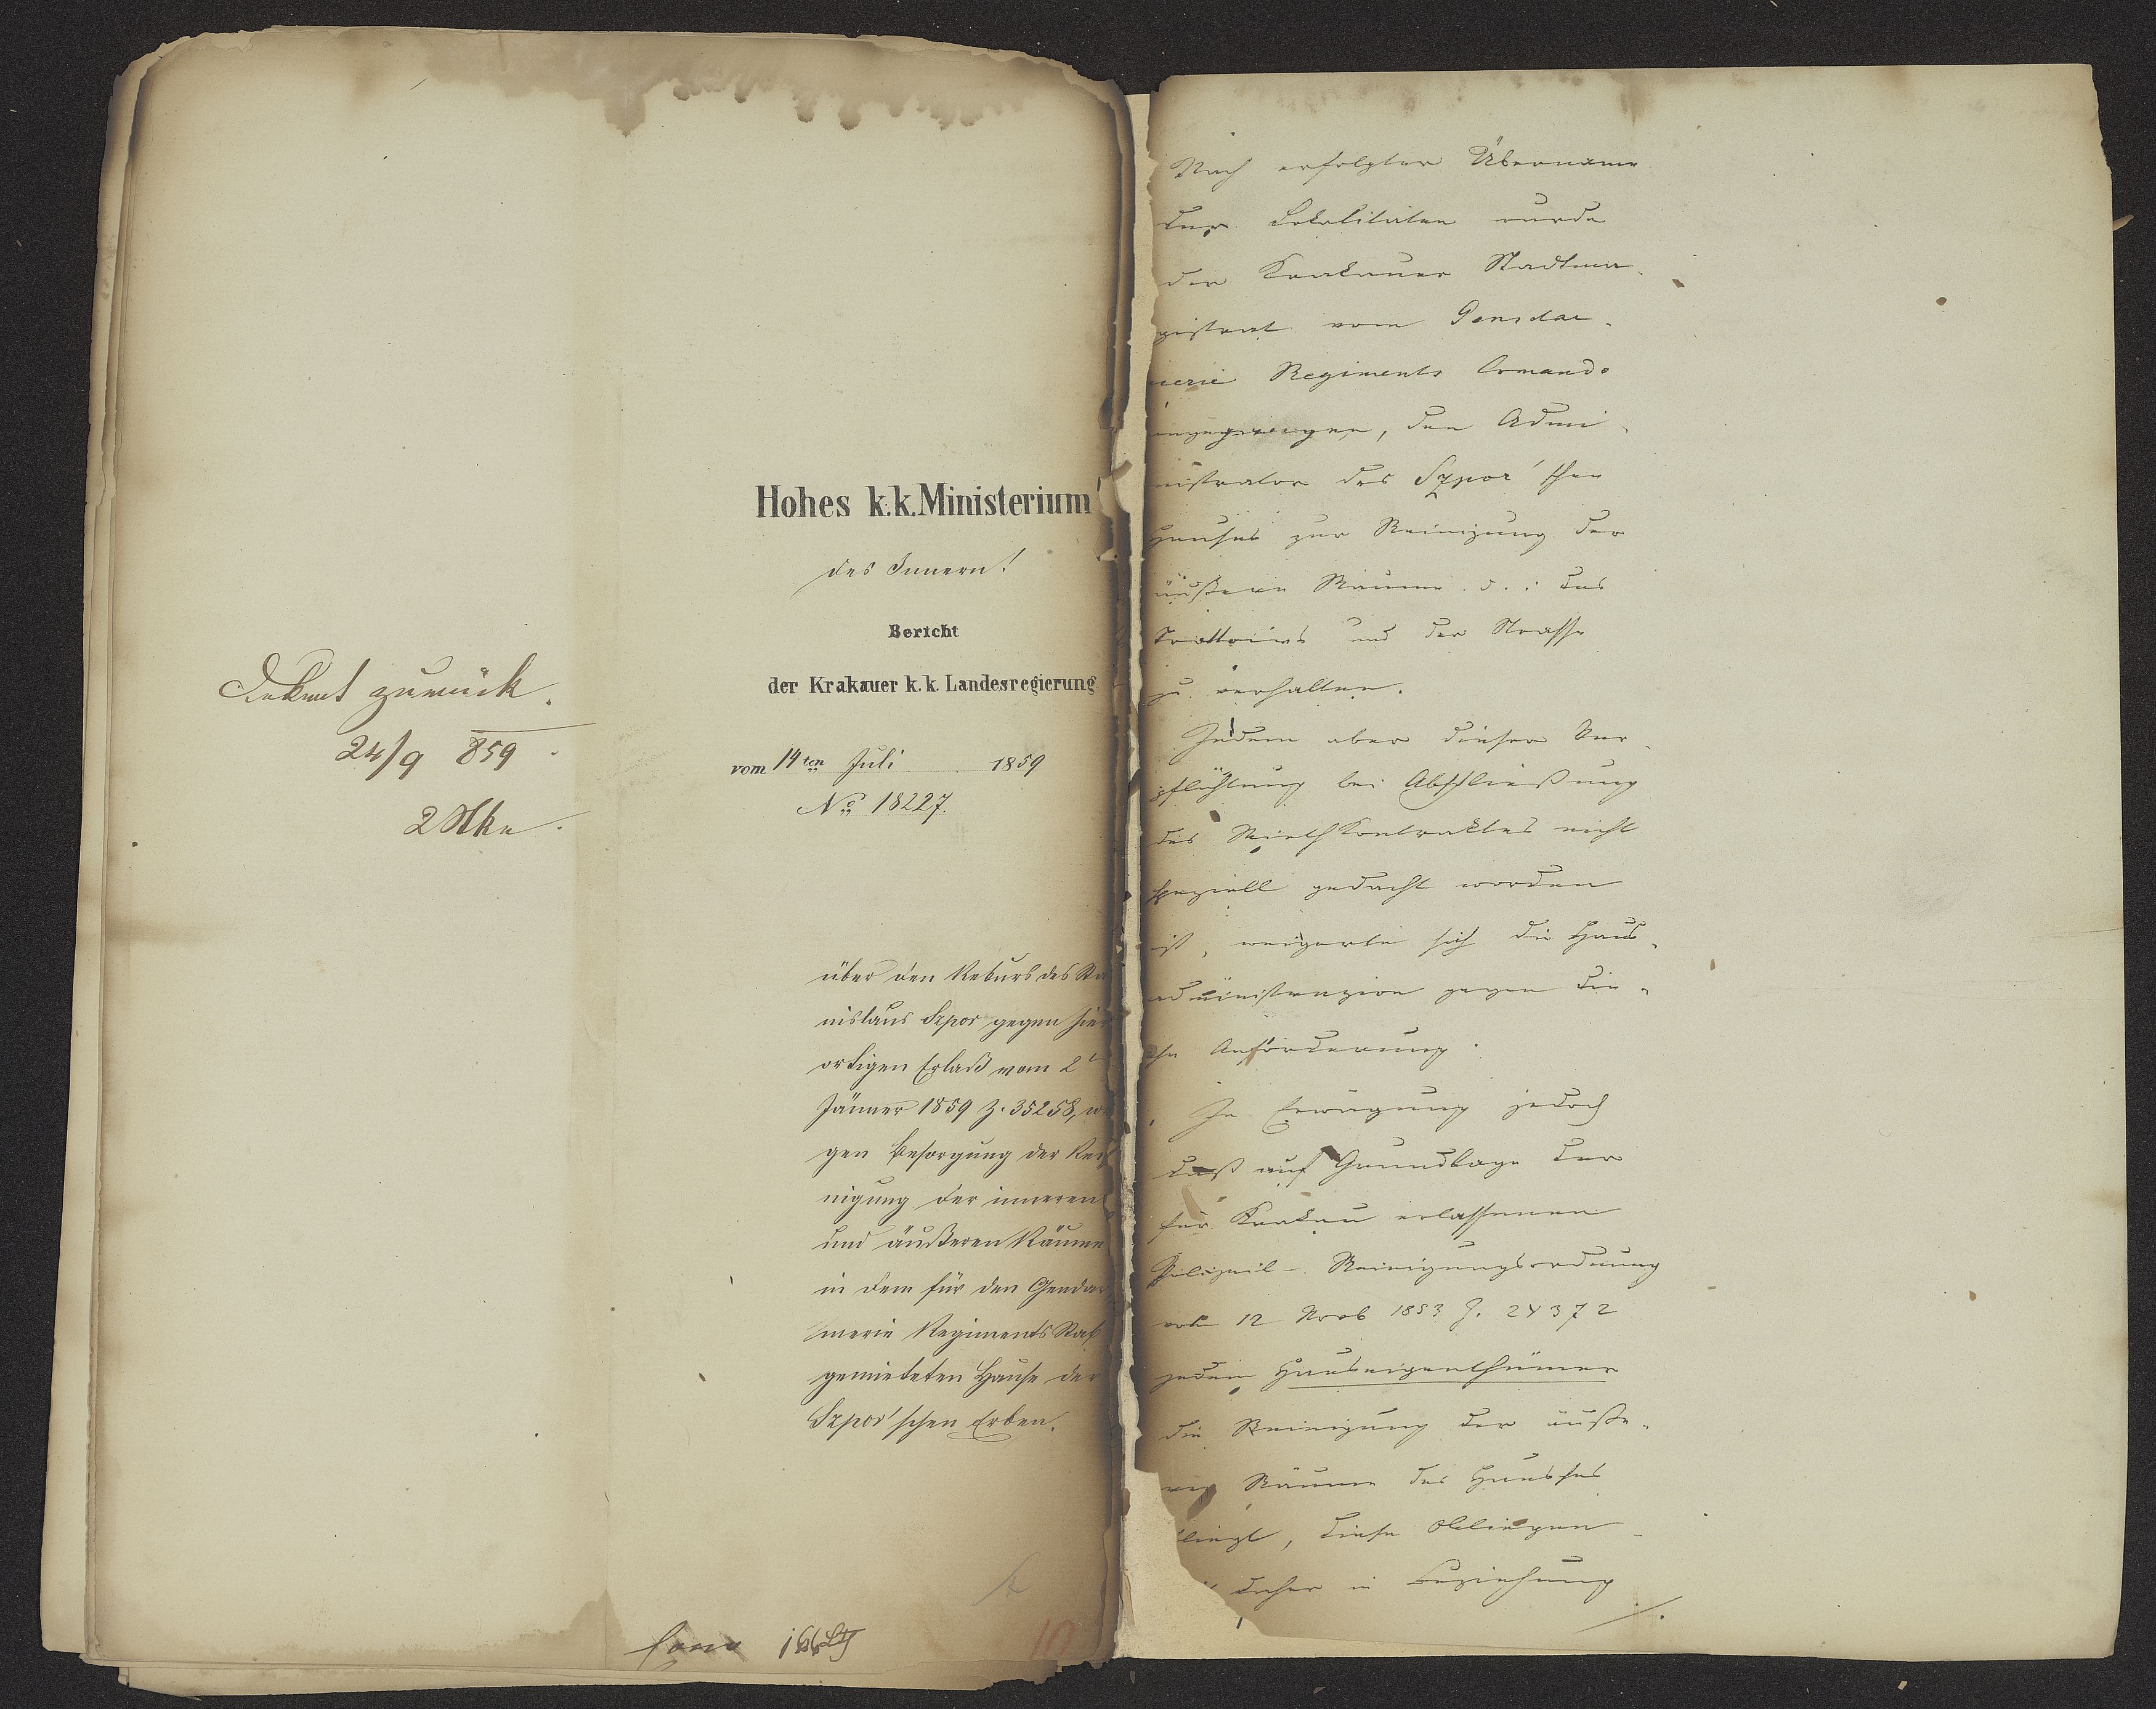 zurück.
24/9 859.
2 Stke.
Hohes k.k. Ministerium
des Innern!
Bericht
der Krakauer k.k. Landesregierung
vom 14ten Juli 1859
No 18227.
über den Rekurs des Sta
nislaus Szpor gegen hier
ortigen Erlaß vom 2t
Jänner 1859 Z. 35258, we
gen Besorgung der Rei
nigung der inneren
und äußeren Räume
in dem für den Gendar
merie Regiments Stab
gemieteten Hause der
Szpor'schen Erben.
10
Nach erfolgter Übername
der Lokalitäten wurde
der Krakauer Stadtma-
gistrat vom Gensdar-
merie Regiments Comando
angegangen, den Admi-
nistrator des Szpor'schen
Hauses zur Reinigung der
äußern Räume d. i. des
Trottoirs und der Strasse
zu verhalten.
Indem aber dieser Ver-
pflichtung bei Abschließung
des Miethkontraktes nicht
speziell gedacht worden
ist, weigerte sich die Haus-
administrazion gegen die-
se Anforderung.
In Erwägung jedoch
daß auf Grundlage der
für Krakau erlassenen
Polizeil- Reinigungsordnung
vom 12 Novb 1853 Z. 24372
jedem Hauseigenthümer
die Reinigung der äuße-
ren Räume des Hauses
liegt, diese Obliegen-
daher in Beziehung
./.